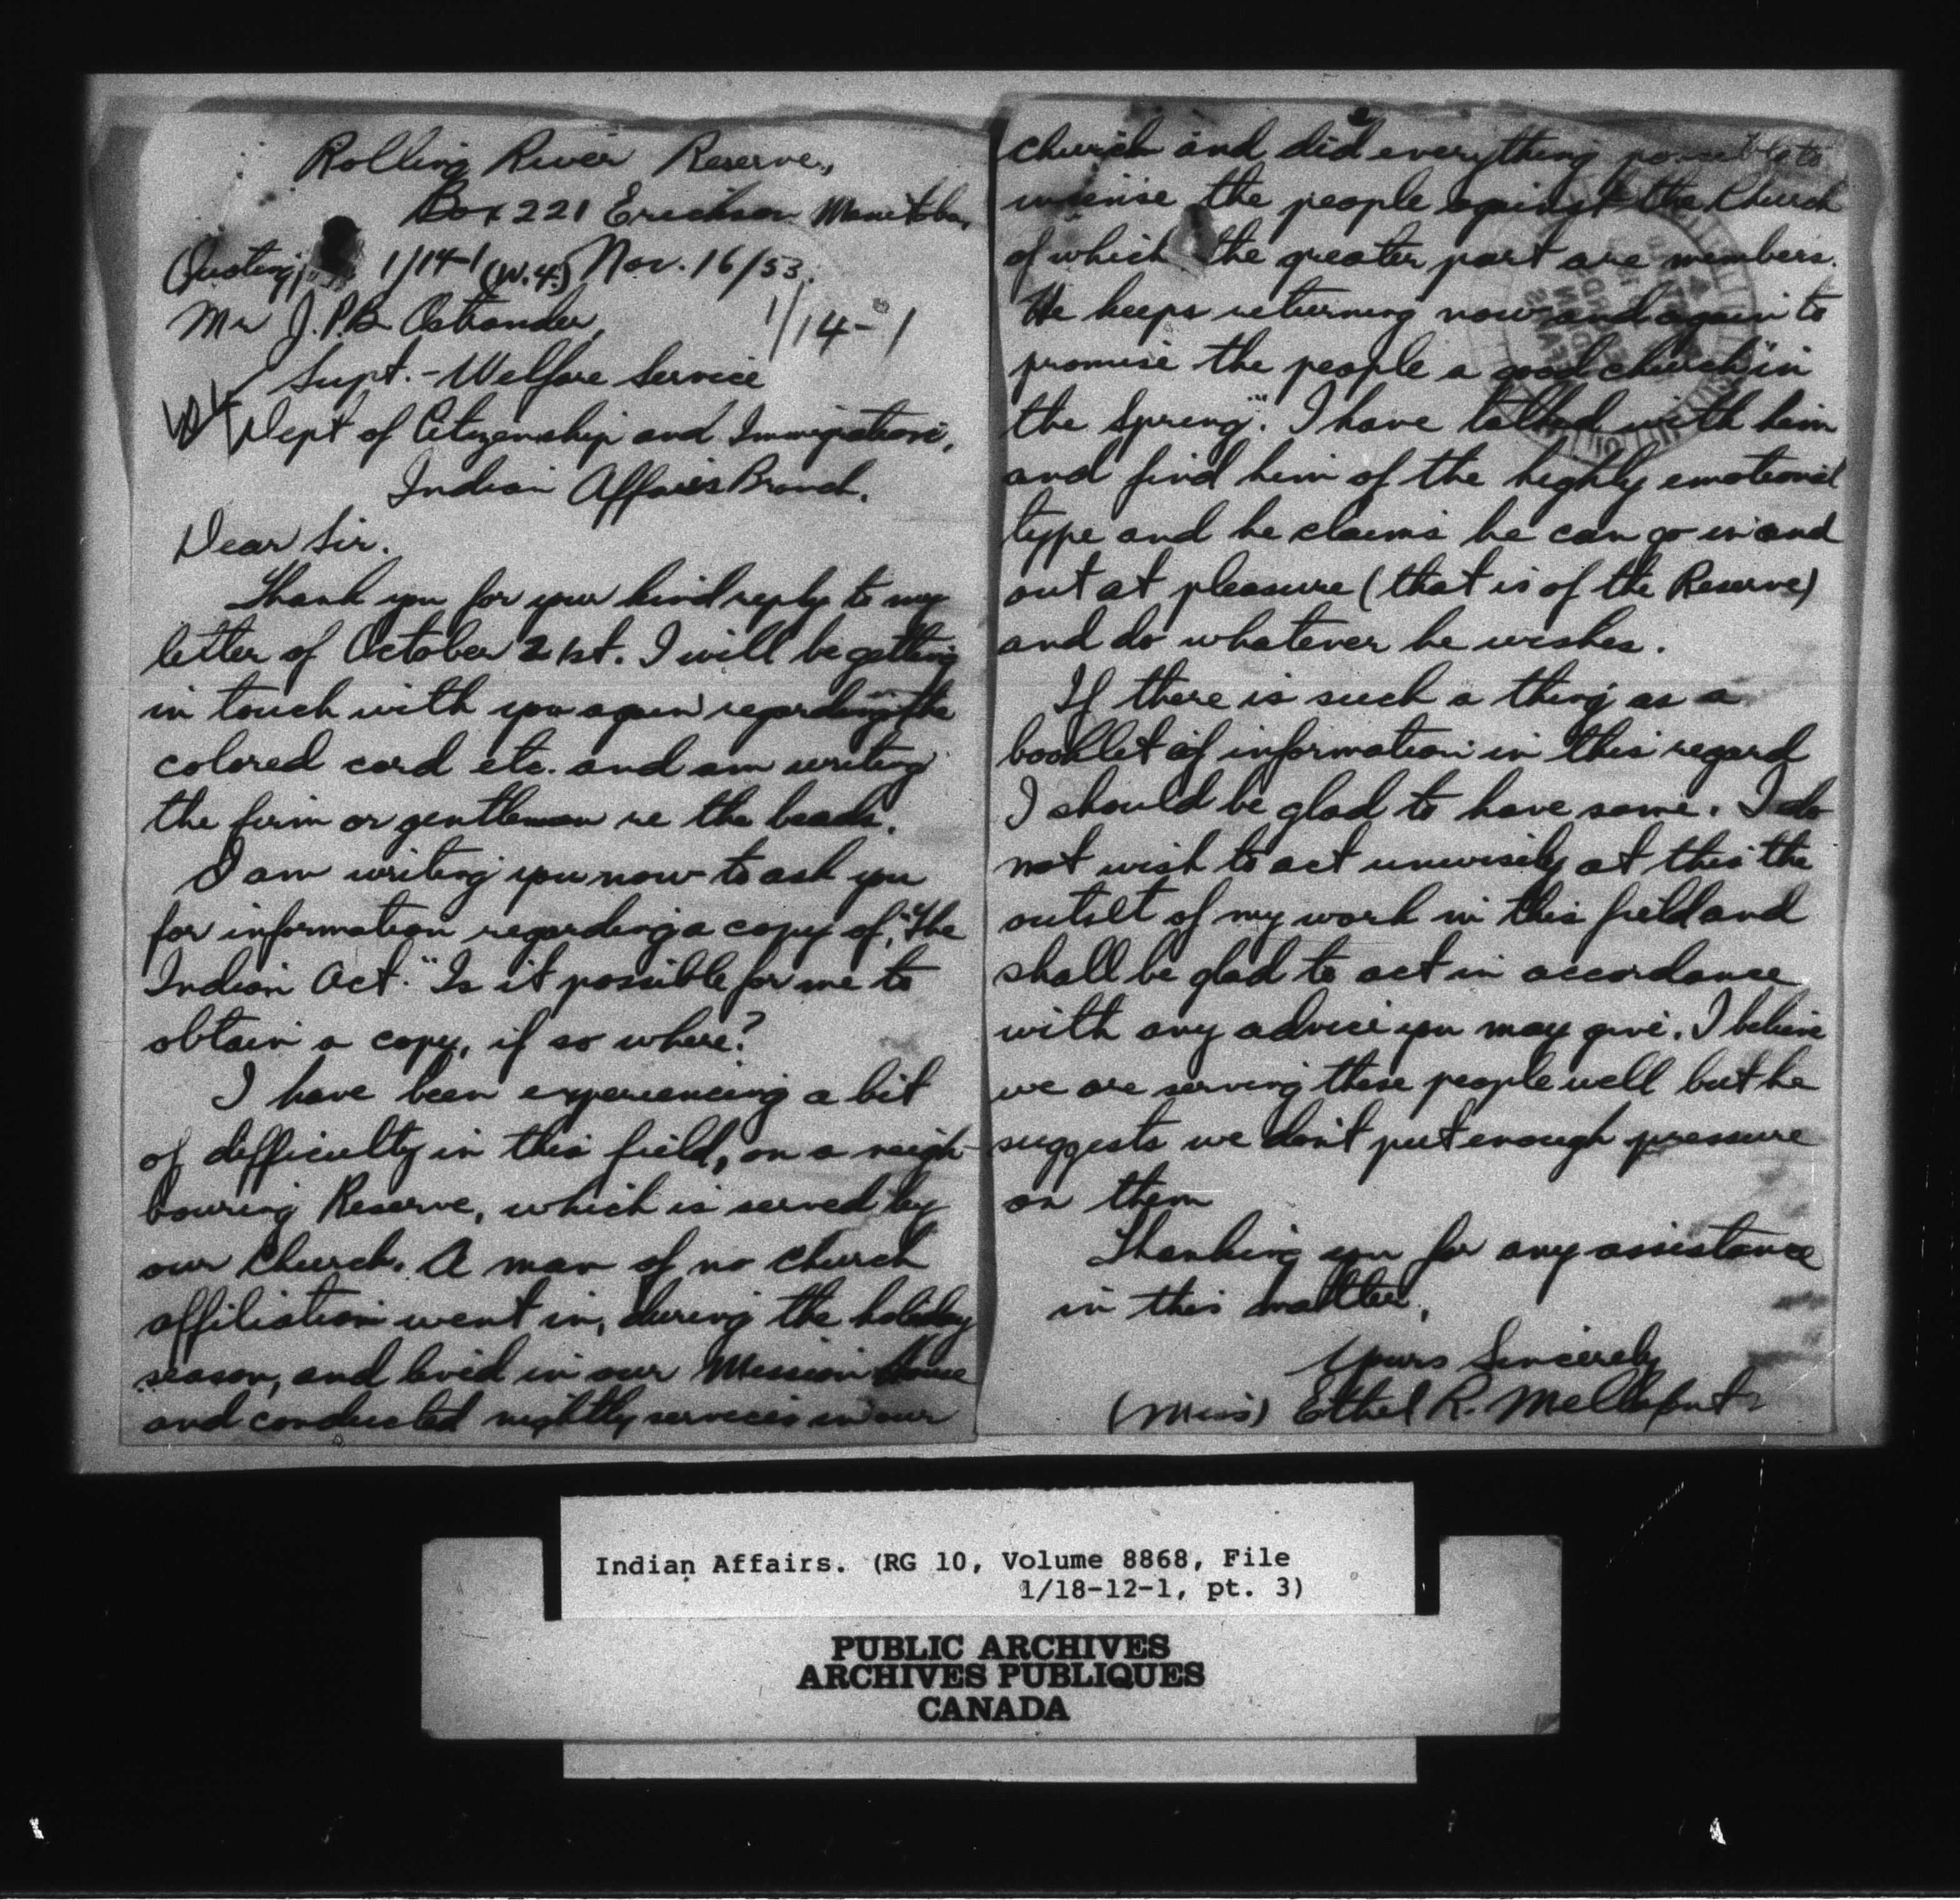 Rolling River Reserve,
Box 221 Erickson Manitoba,
Quoting, 1/14-1 (W.4.) Nov. 16/53.
Mr J.P.B. Ostrander,
1/14-1
Supt. - Welfare Service
W4
Dept of Citizenship and Immigration,
Indian Affairs Branch.
Dear Sir.
Thank you for your kind reply to my
letter of October 21st. I will be getting
in touch with you again regarding the
colored card etc. and am writing
the firm or gentleman re the beads.
I am writing you now to ask you
for information regarding a copy of, "The
Indian Act." Is it possible for me to
obtain a copy, if so where?
I have been experiencing a bit
of difficulty in this field, on a neigh-
bouring Reserve, which is served by
our Church. A man of no church
affiliation went in, during the holiday
season, and lived in our Mission House
and conducted nightly services in our
church and did everything possible to
incense the people against the Church
of which the greater part are members.
He keeps returning now and again to
promise the people a "good church in
the Spring". I have talked with him
and find him of the highly emotional
type and he claims he can go in and
out at pleasure (that is of the Reserve)
and do whatever he wishes.
If there is such a thing as a
booklet of information in this regard
I should be glad to have same. I do
not wish to act unwisely at this the
outset of my work in this field and
shall be glad to act in accordance
with any advice you may give. I believe
we are serving these people well but he
suggests we don't put enough pressure
on them
Thanking you for any assistance
in this matter,
Yours Sincerely
(Miss) Ethel R.
Indian Affairs. (RG 10, Volume 8868, File
1/18-12-1, pt. 3)
PUBLIC ARCHIVES
ARCHIVES PUBLIQUES
CANADA